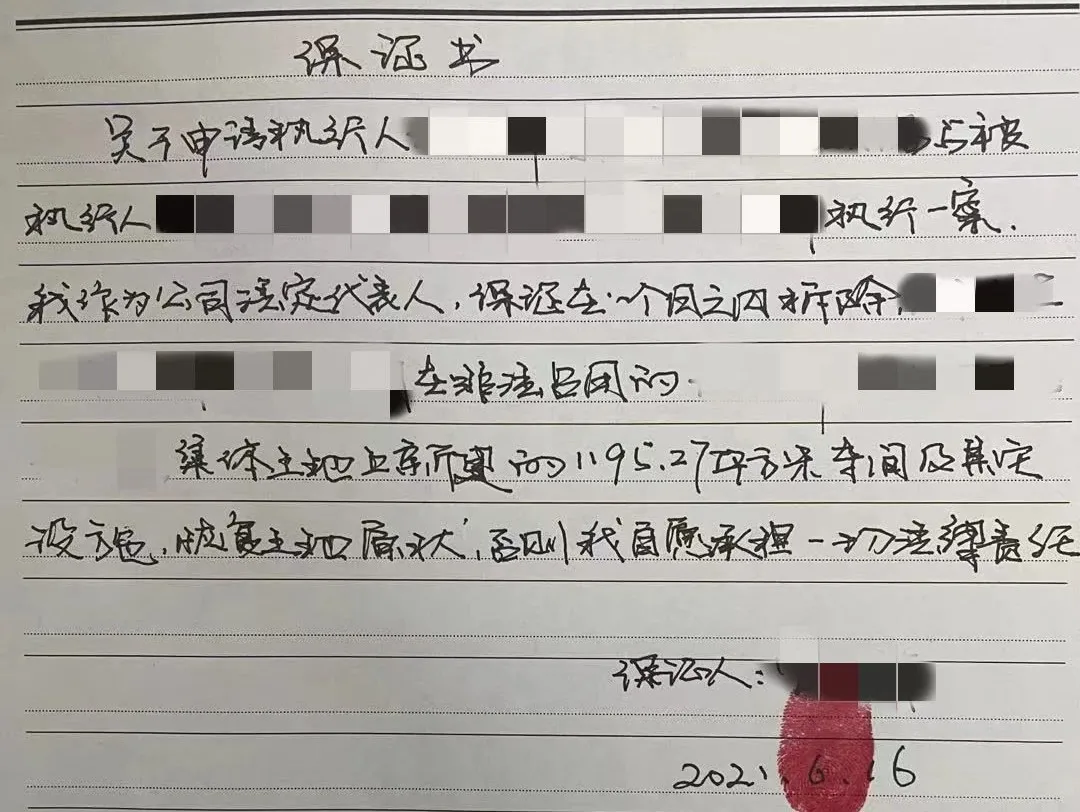 保证书
关于申请执行人 与被
执行人 执行一案.
我作为公司法定代表人,保证在一个月之内拆除
在非法占用的
集体土地上所建的1195.27平方米车间及其它
设施,恢复土地原状,否则我自愿承担一切法律责任
保证人:
2021.6.16